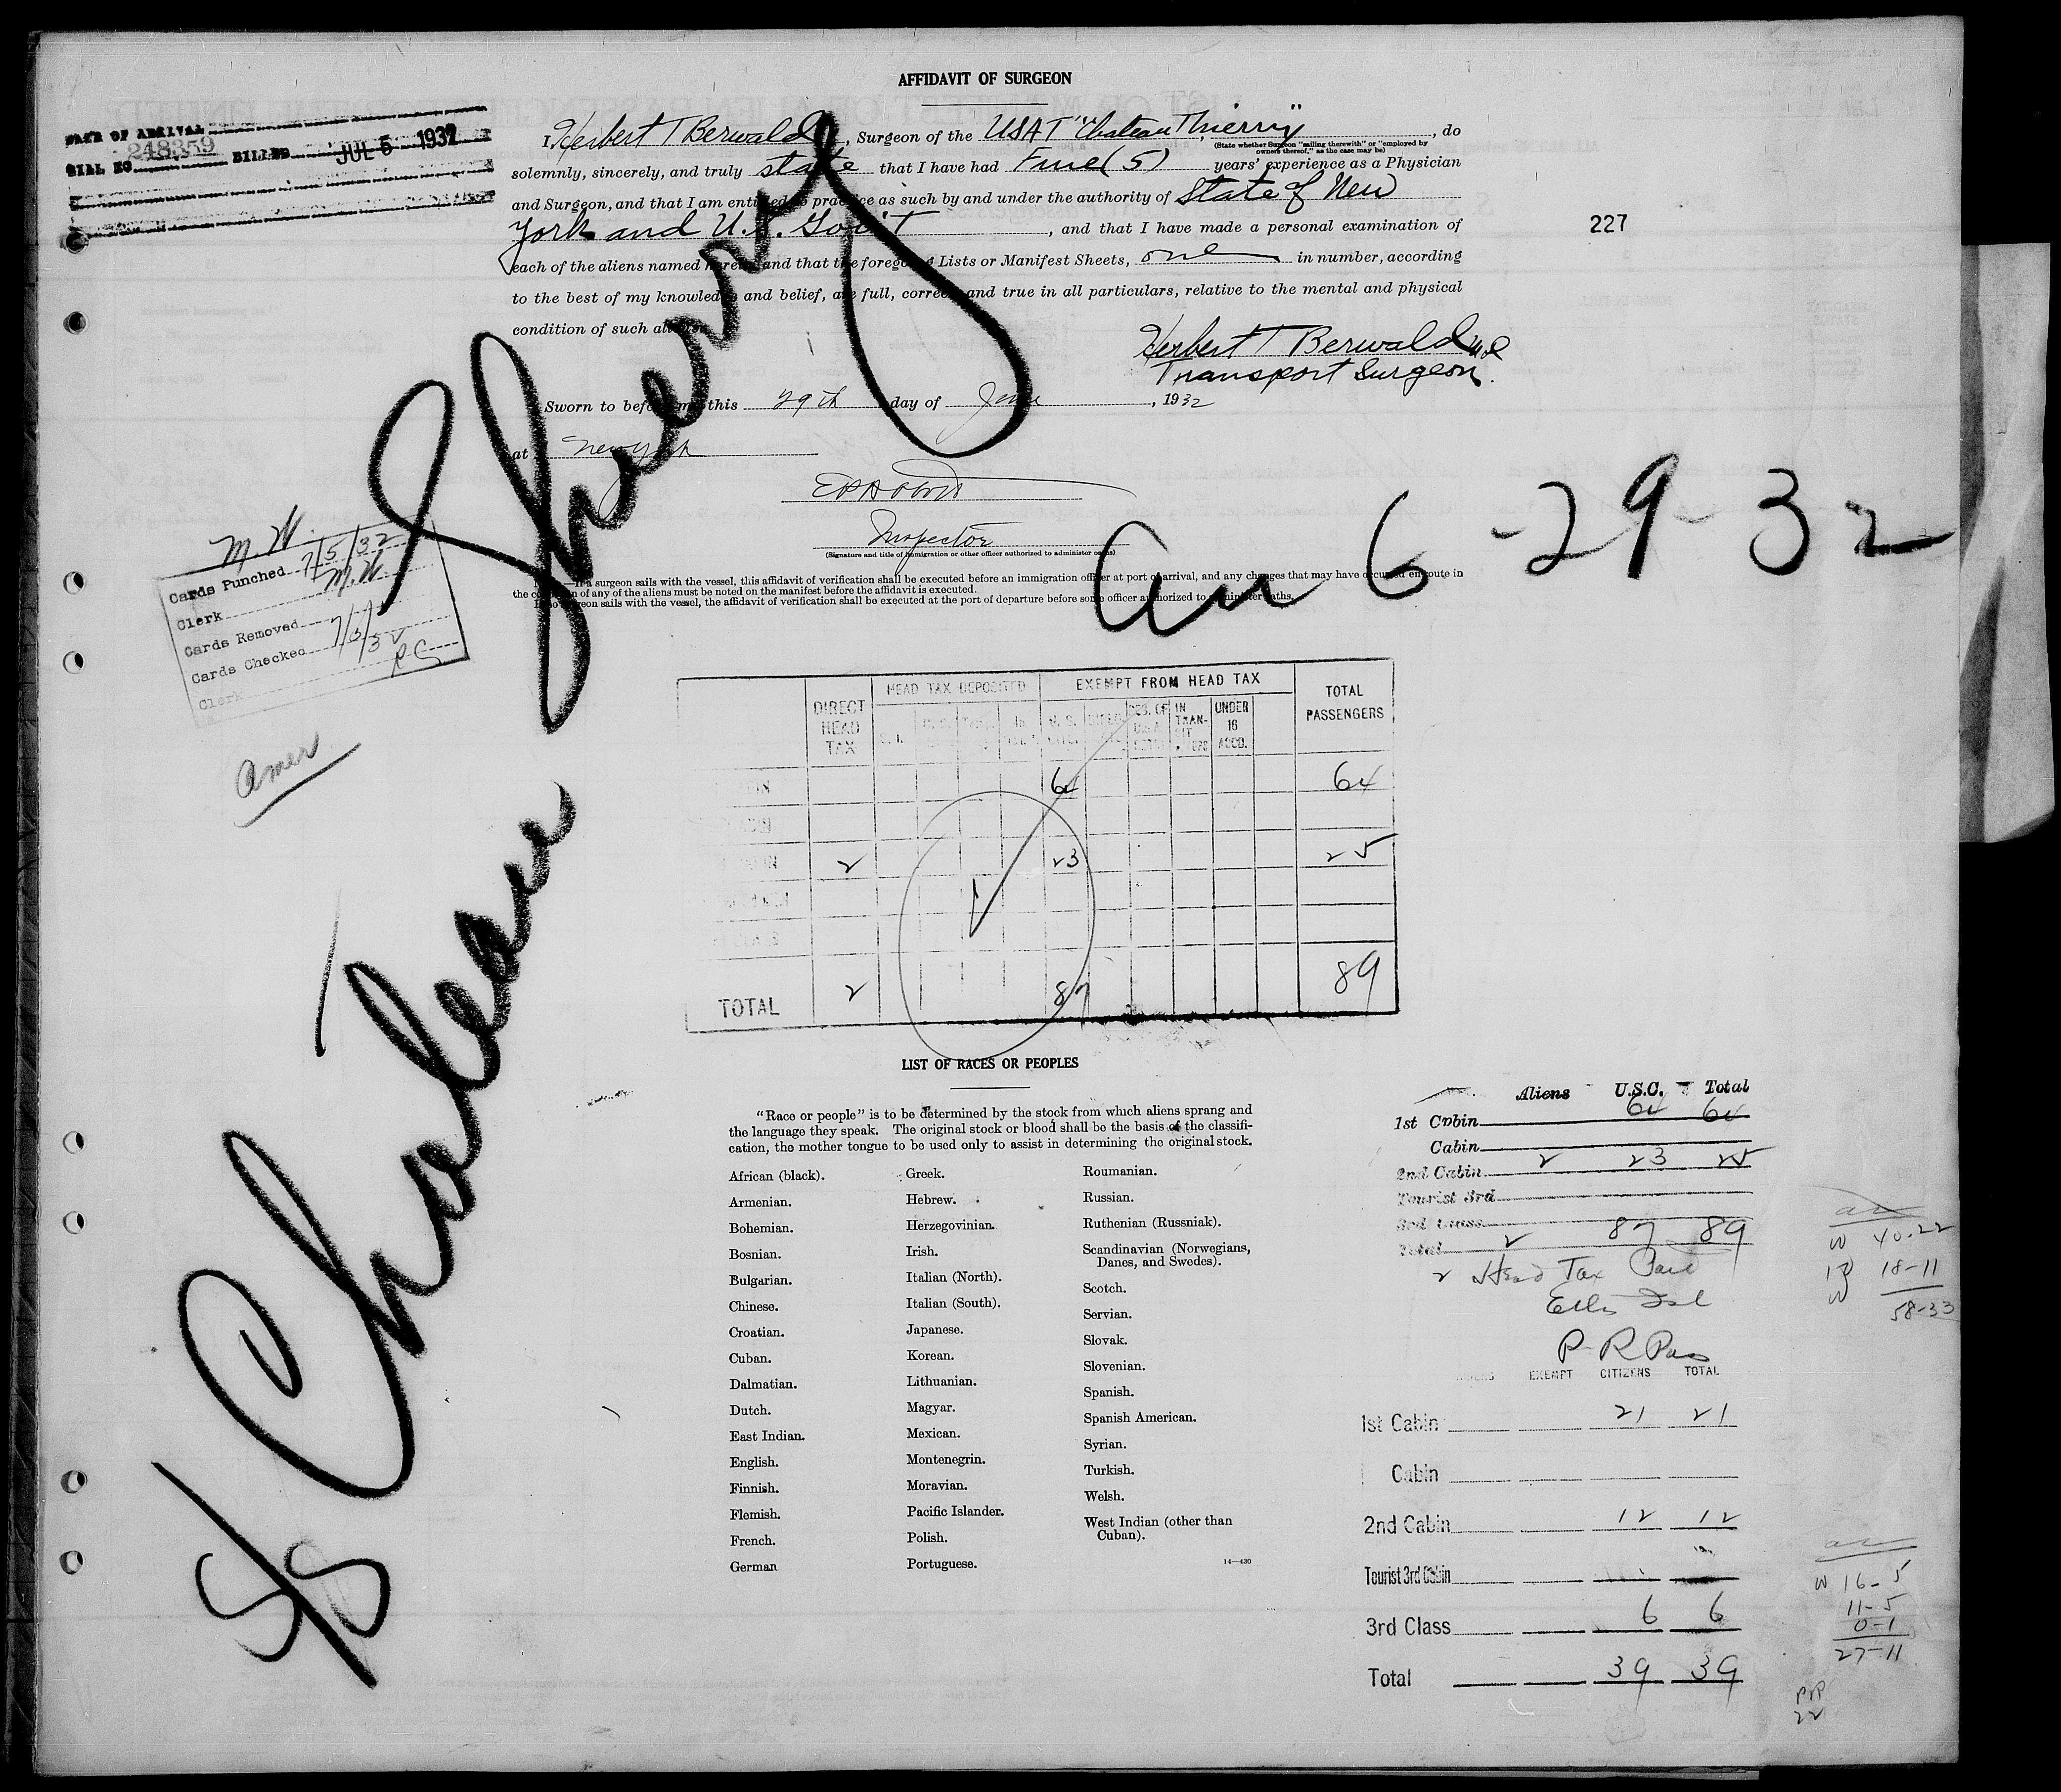 AFFIDAVIT OF SURGEON
DATE OF ARRIVAL
248359
BILL NO. BILLED JUL 5 1932
I, Herbert T Berwald, Surgeon of the USAT "Chateau Thierry", do
(State whether Surgeon "sailing therewith" or "employed by
owners thereof," as the case may be)
solemnly, sincerely, and truly state that I have had Five (5) years' experience as a Physician
and Surgeon, and that I am entitled to practice as such by and under the authority of State of New
York and U.S. Gov't, and that I have made a personal examination of
227
each of the aliens named herein and that the foregoing Lists or Manifest Sheets, one in number, according
to the best of my knowledge and belief, are full, correct, and true in all particulars, relative to the mental and physical
condition of such aliens.
Herbert T Berwald MD
Transport Surgeon.
Sworn to before me this 29th day of June, 1932
at New York
Inspector
(Signature and title of immigration or other officer authorized to administer oaths)
NOTE.—If a surgeon sails with the vessel, this affidavit of verification shall be executed before an immigration officer at port of arrival, and any changes that may have occurred en route in
the condition of any of the aliens must be noted on the manifest before the affidavit is executed.
If no surgeon sails with the vessel, the affidavit of verification shall be executed at the port of departure before some officer authorized to administer oaths.
S/S Chateau Thierry
6-29-32
M.W.
Cards Punched 7/5/32
Clerk M.W
Cards Removed
Cards Checked 7/5/32
Clerk RC
Amer
DIRECT HEAD TAX
HEAD TAX DEPOSITED
EXEMPT FROM HEAD TAX
TOTAL PASSENGERS
UNDER 16 ACCD.
64 64
2 23 25
TOTAL 2 87 89
LIST OF RACES OR PEOPLES
"Race or people" is to be determined by the stock from which aliens sprang and
the language they speak. The original stock or blood shall be the basis of the classifi-
cation, the mother tongue to be used only to assist in determining the original stock.
African (black).
Armenian.
Bohemian.
Bosnian.
Bulgarian.
Chinese.
Croatian.
Cuban.
Dalmatian.
Dutch.
East Indian.
English.
Finnish.
Flemish.
French.
German
Greek.
Hebrew.
Herzegovinian.
Irish.
Italian (North).
Italian (South).
Japanese.
Korean.
Lithuanian.
Magyar.
Mexican.
Montenegrin.
Moravian.
Pacific Islander.
Polish.
Portuguese.
Roumanian.
Russian.
Ruthenian (Russniak).
Scandinavian (Norwegians,
Danes, and Swedes).
Scotch.
Servian.
Slovak.
Slovenian.
Spanish.
Spanish American.
Syrian.
Turkish.
Welsh.
West Indian (other than
Cuban).
14—430
Aliens U.S.C. Total
1st Cabin 64 64
Cabin
2nd Cabin 2 23 25
Tourist 3rd
3rd Class
Total 2 87 89
2 Head Tax Paid
Ellis Isl
P.R Pass
EXEMPT CITIZENS TOTAL
1st Cabin 21 21
Cabin
2nd Cabin 12 12
Tourist 3rd Cabin
3rd Class 6 6
Total 39 39
W 40-22
18-11
58-33
W 16-5
11-5
0-1
27-11
PR
22